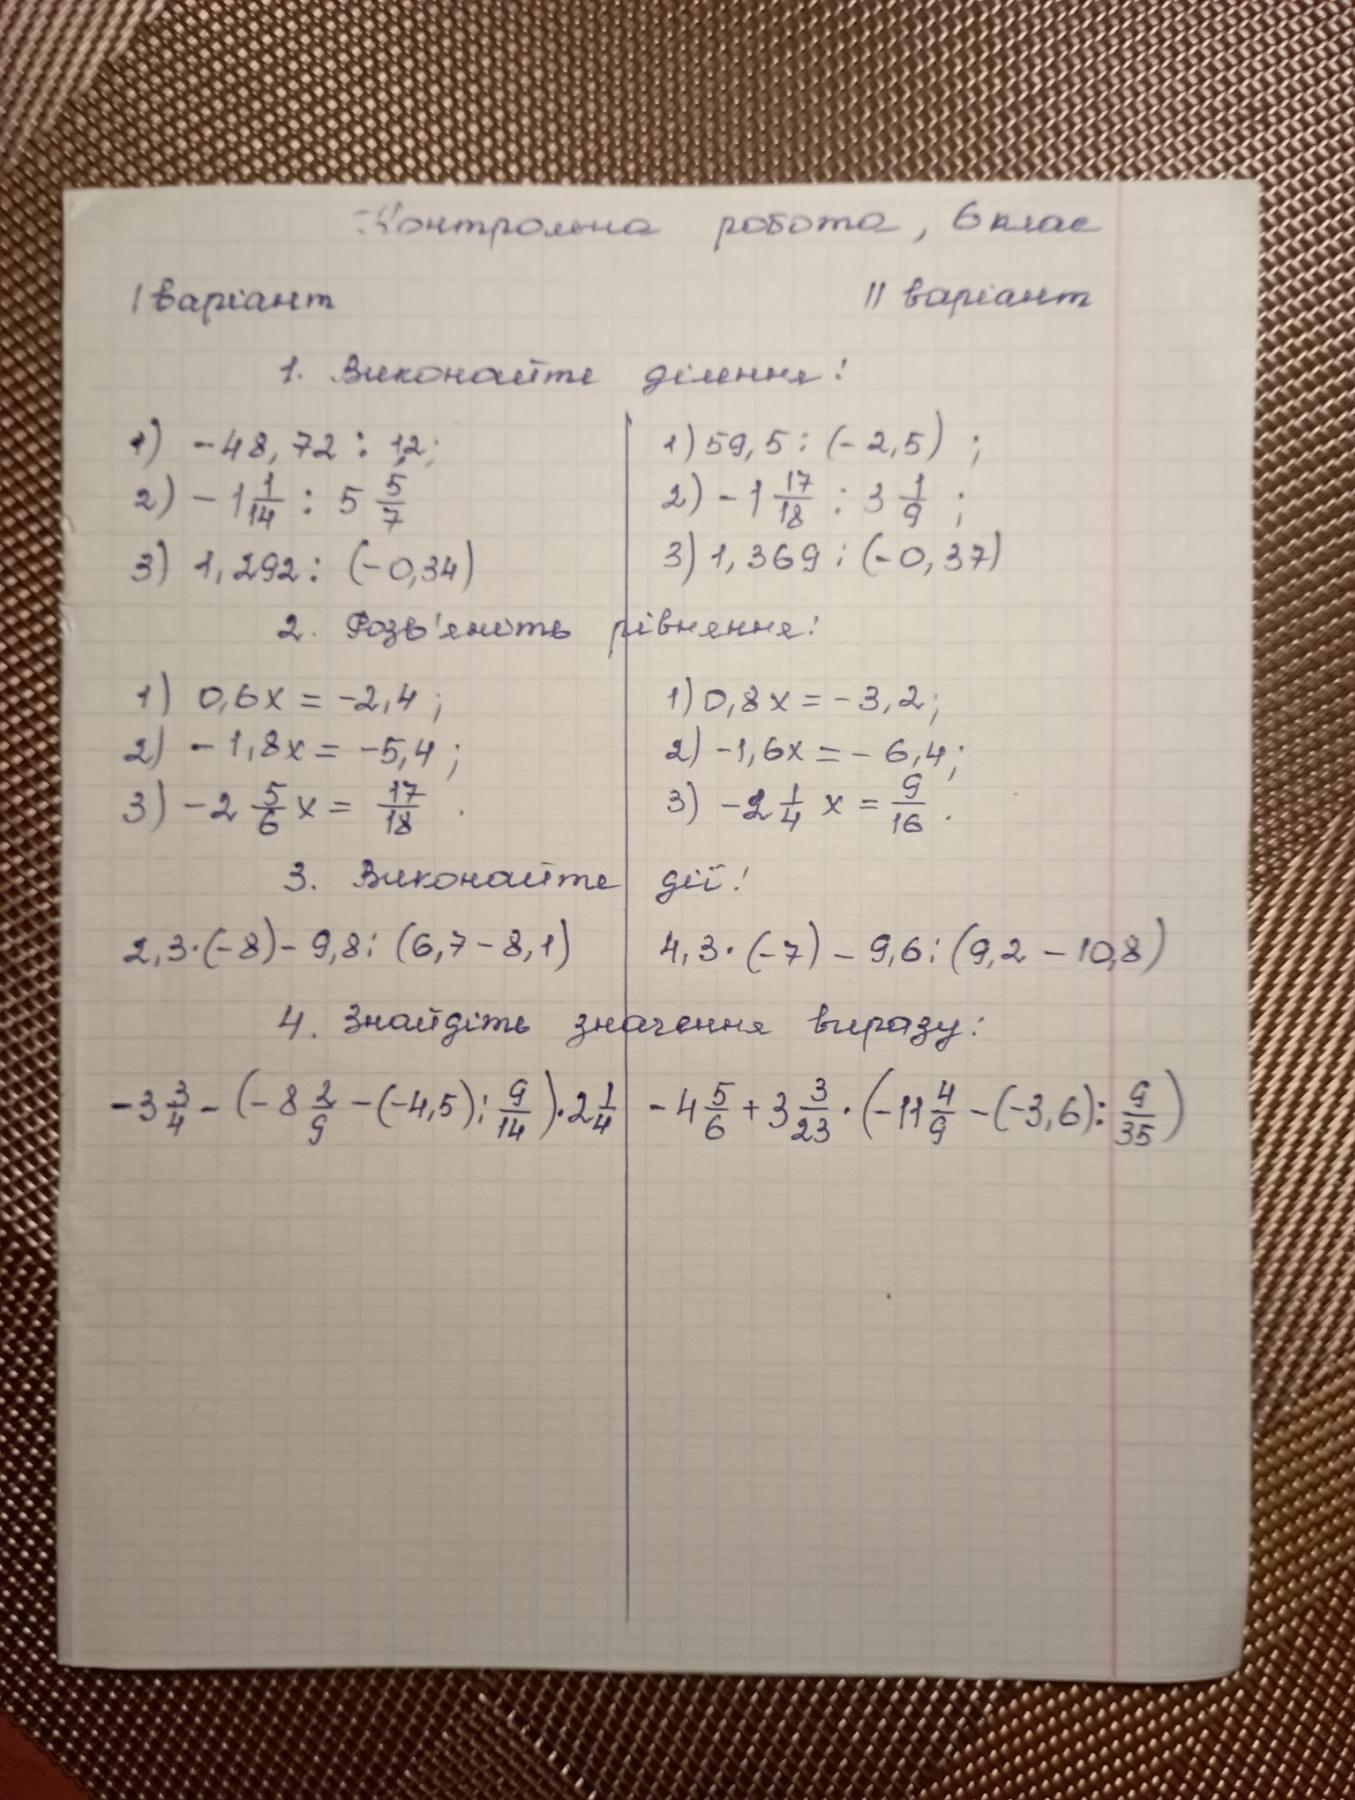 Контрольна робота, 6 клас
I варіант II варіант
1. Виконайте ділення:
1) -48,72 : 12; 1) 59,5 : (-2,5) ;
2) -1 1/14 : 5 5/7 2) -1 17/18 : 3 1/9 ;
3) 1,292 : (-0,34) 3) 1,369 : (-0,37)
2. Розв'яжіть рівняння:
1) 0,6x = -2,4 ; 1) 0,8x = -3,2;
2) -1,8x = -5,4 ; 2) -1,6x = -6,4;
3) -2 5/6 x = 17/18 . 3) -2 1/4 x = 9/16 .
3. Виконайте дії:
2,3·(-8) - 9,8 : (6,7 - 8,1) 4,3·(-7) - 9,6 : (9,2 - 10,8)
4. Знайдіть значення виразу:
-3 3/4 - (-8 2/9 - (-4,5) : 9/14)·2 1/4 -4 5/6 + 3 3/23 · (-11 4/9 - (-3,6) : 9/35)